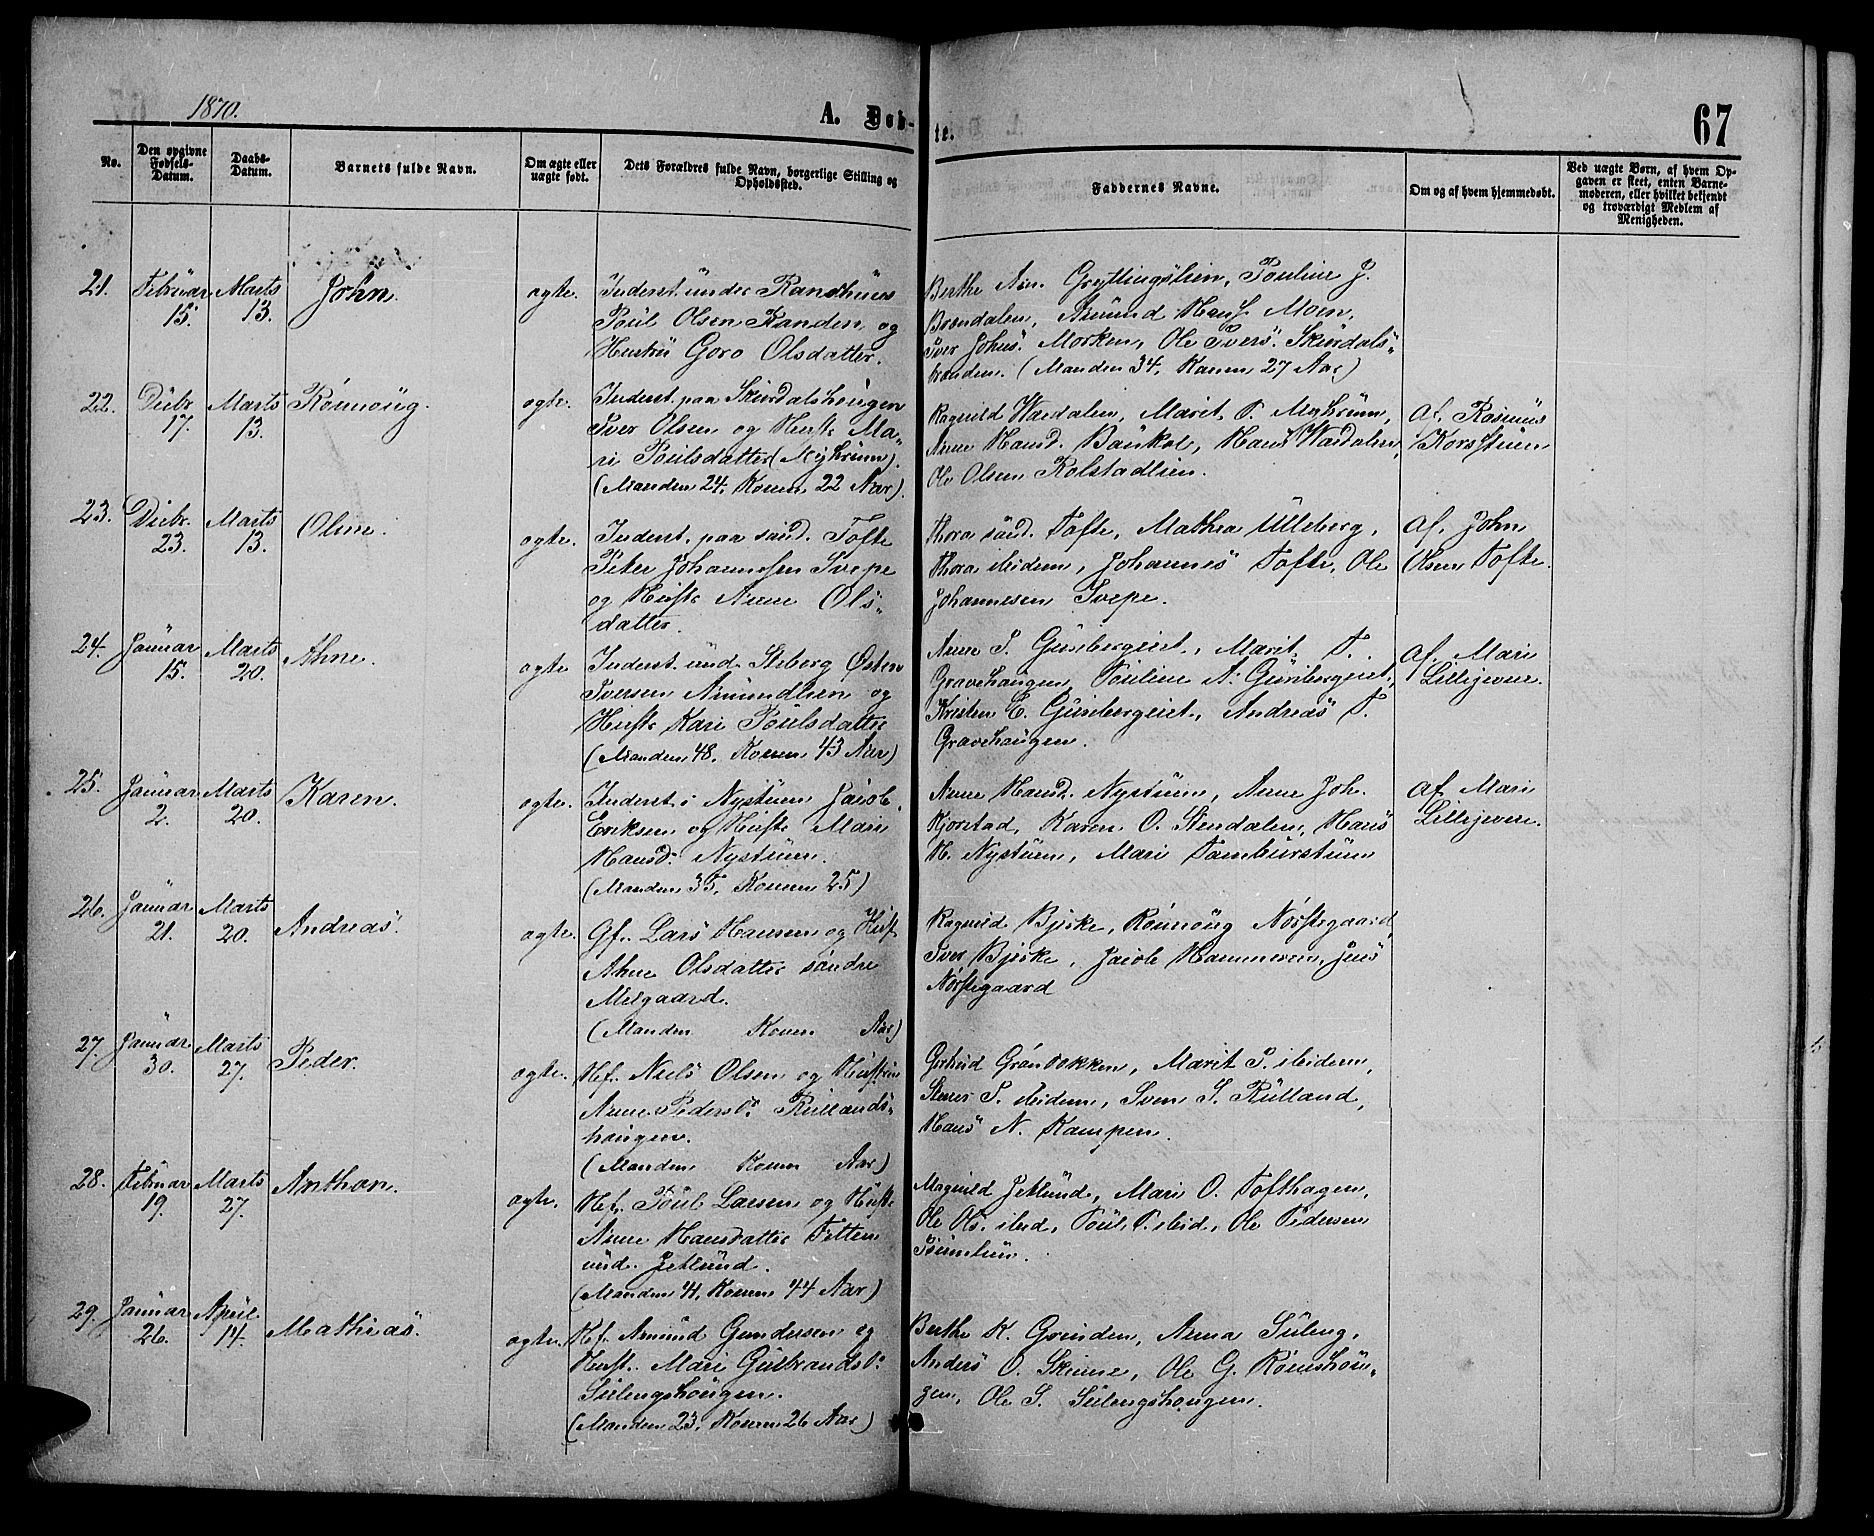 1870.
A. Døb-
te.
67
No.
Den opgivne Fødsels-Datum.
Daabs-Datum.
Barnets fulde Navn.
Om ægte eller uægte født.
Dets Forældres fulde Navn, borgerlige Stilling og Opholdssted.
Faddernes Navne.
Om og af hvem hjemmedøbt.
Ved uægte Børn, af hvem Opgaven er skeet, enten Barnemoderen, eller hvilket bekjendt og troværdigt Medlem af Menigheden.
21. Februar 15. Marts 13. John. ægte.
Inderst under Randhues
Poul Olsen Randen og
Hustru Goro Olsdatter.
Berthe Am. Gryttingslien, Pouline J.
Brendalen, Amund Hans. Moen,
Iver Johns. Morken, Ole Ivers. Skurdals-
branden. (Manden 34, Konen 27 Aar)
22. Dübr 17. Marts 13. Rönnoug. ægte.
Inderst paa Skurdalshougen
Iver Olsen og Hust. Ma-
ri Poulsdatter (Myhrum).
(Manden 24, Konen 22 Aar).
Ragnild Wardalen, Marit P. Myhrum,
Anne Hansd. Baukol, Hans Wardalen,
Ole Olsen Kolstadlien.
Af Rasmus
Korsstuen
23. Dübr. 23. Marts 13. Oline. ægte.
Inderst paa sönd. Tofte
Peter Johannesen Svepe
og Hust. Anne Ols-
datter.
Thora sönd. Tofte, Mathea Ulleberg,
Thora ibidem, Johannes Tofte, Ole
Johannesen Svepe.
Af John
Olsen Tofte.
24. Januar 15. Marts 20. Ahne. ægte.
Inderst und. Steberg Østen
Iversen Amundlien og
Hust. Kari Poulsdatter
(Manden 48, Konen 43 Aar)
Anne P. Gunbergeiet, Marit T.
Gravehaugen, Pouline A. Gunbergeiet,
Kristen E. Gunbergeiet, Andreas T.
Gravehaugen.
Af Mari
Lillejevre.
25. Januar 2. Marts 20. Karen. ægte.
Inderst i Nystuen Jacob
Eriksen og Hust. Mari
Hansd. Nystuen.
(Manden 35, Konen 25)
Anne Hansd. Nystuen, Anne Joh.
Kjorstad, Karen O. Stendalen, Hans
H. Nystuen, Mari Tamburstuen
Af Mari
Lillejevre.
26. Januar 21. Marts 20. Andreas. ægte.
Gf. Lars Hansen og Hust
Ahne Olsdatter söndre
Melgaard.
(Manden Konen Aar)
Ragnild Bjerke, Rönnoug Norstegaard,
Iver Bjerke, Jacob Hammeren, Jens
Norstegaard
27. Januar 30. Marts 27. Peder. ægte.
Hf. Niels Olsen og Hustru
Anne Pedersdr. Rullands-
hougen.
(Manden Konen Aar)
Gertrud Grönbokken, Marit P. ibidem,
P. ibidem, Sven S. Rulland,
Hans N. Kampen.
28. Februar 19. Marts 27. Anthon. ægte.
Hf. Poul Larsen og Hust.
Anne Hansdatter
und. Jetlund.
(Manden 41, Konen 44 Aar)
Magnild Jetlund, Mari O. Tofthagen,
Ole Ols. ibid, Poul P. ibid, Ole Pedersen
29. Januar 26. April 14. Mathias. ægte.
Hf. Amund Gundersen og
Hust. Mari Gulbrandsdr.
Sulengshougen.
(Manden 23, Konen 26 Aar)
Berthe K. Grinden, Anna Suleng,
Anders O. Skinne, Ole G. Römshou-
gen, Ole S. Sulengshougen.